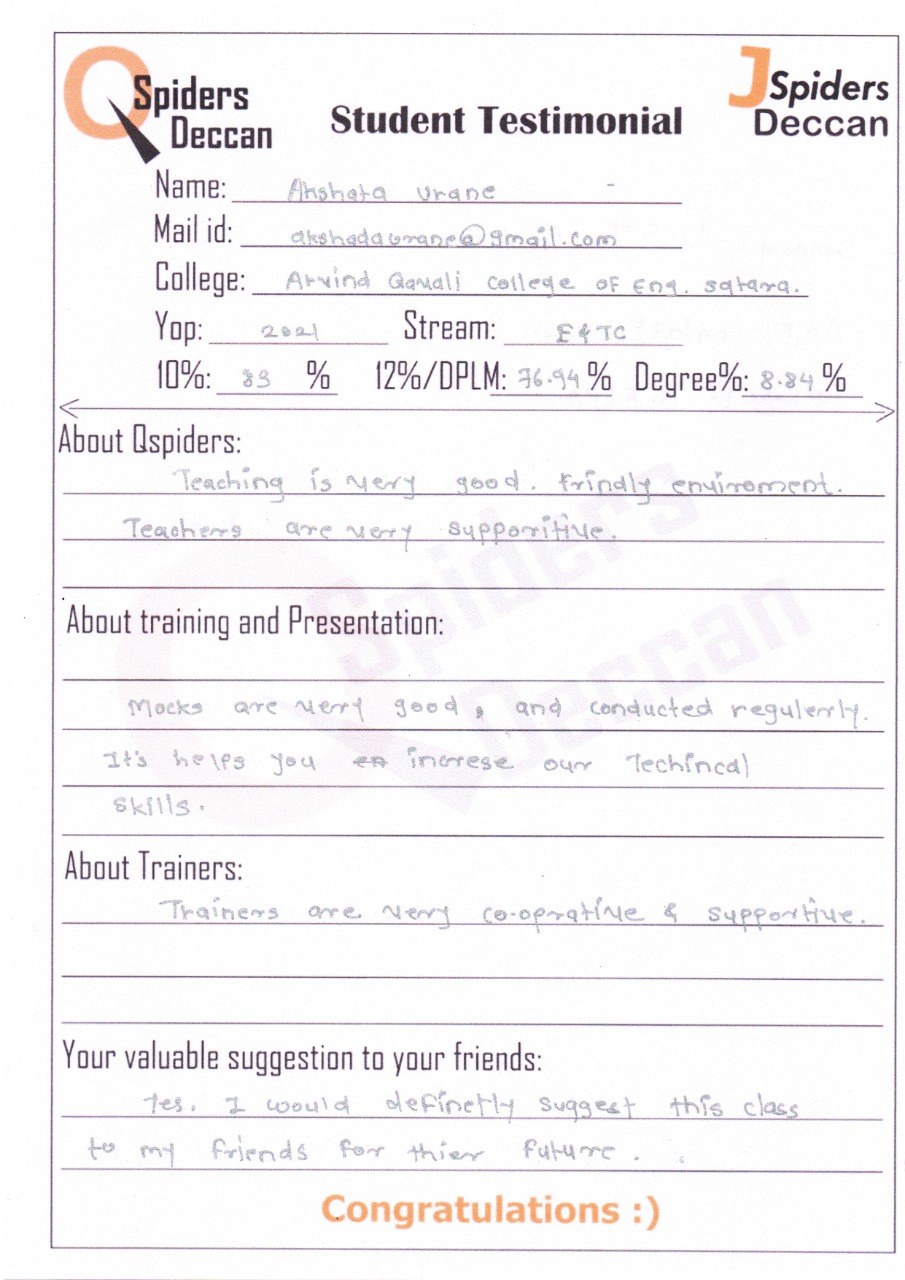 QSpiders Deccan
Student Testimonial
JSpiders Deccan
Name: Akshata Urane
Mail id: akshadaurane@gmail.com
College: Arvind Gavali college of Eng. satara.
Yop: 2021 Stream: E&TC
10%: 83 % 12%/DPLM: 76.94 % Degree%: 8.84 %
About Qspiders:
Teaching is very good. frindly enviroment.
Teachers are very supporitive.
About training and Presentation:
Mocks are very good, and conducted regulerly.
It's helps you increse our Techincal
skills.
About Trainers:
Trainers are very co-oprative & supportive.
Your valuable suggestion to your friends:
Yes. I would definetly suggest this class
to my friends for thier future.
Congratulations :)
QSpiders
Deccan